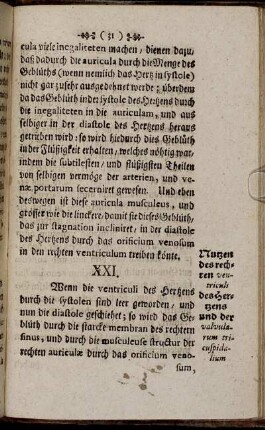 ( 31 )
cula viele inegaliteten machen, dienen dazu,
daß dadurch die auricula durch die Menge des
Geblüths (wenn nemlich das Hertz in systole)
nicht gar zusehr ausgedehnet werde; überdem
da das Geblüth in der systole des Hertzens durch
die inegaliteten in die auriculam, und aus
selbiger in der diastole des Hertzens heraus
getrieben wird: so wird hiedurch dies Geblüth
in der Flüßigkeit erhalten, welches nöhtig war,
indem die subtilesten, und flüßigsten Theilen
von selbigen vermöge der arterien, und ve-
næ portarum secerniret gewesen. Und eben
deswegen ist diese auricula musculeus, und
grösser wie die linckere, damit sie dieses Geblüth,
das zur stagnation incliniret, in der diastole
des Hertzens durch das orificium venosum
in den rechten ventriculum treiben könte.
XXI.
Wenn die ventriculi des Hertzens
durch die systolen sind leer geworden, und
nun die diastole geschiehet; so wird das Ge-
blüth durch die starcke membran des rechtern
sinus, und durch die musculeuse structur der
rechten auriculæ durch das orificium veno-
sum,
Nutzen
des rech-
ten ven-
triculi
des Her-
tzens
und der
valvula-
rum tri-
cuspida-
lium